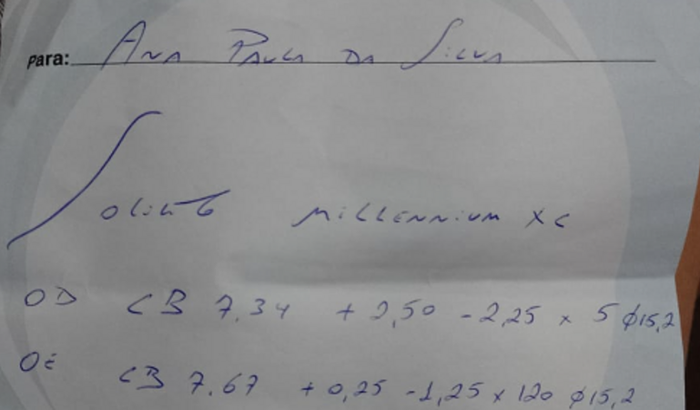 para: Ana Paula da Silva
Solicito Millennium XC
OD CB 7.34 + 2,50 - 2,25 x 5 ϕ15,2
OE CB 7.67 + 0,25 - 1,25 x 120 ϕ15,2